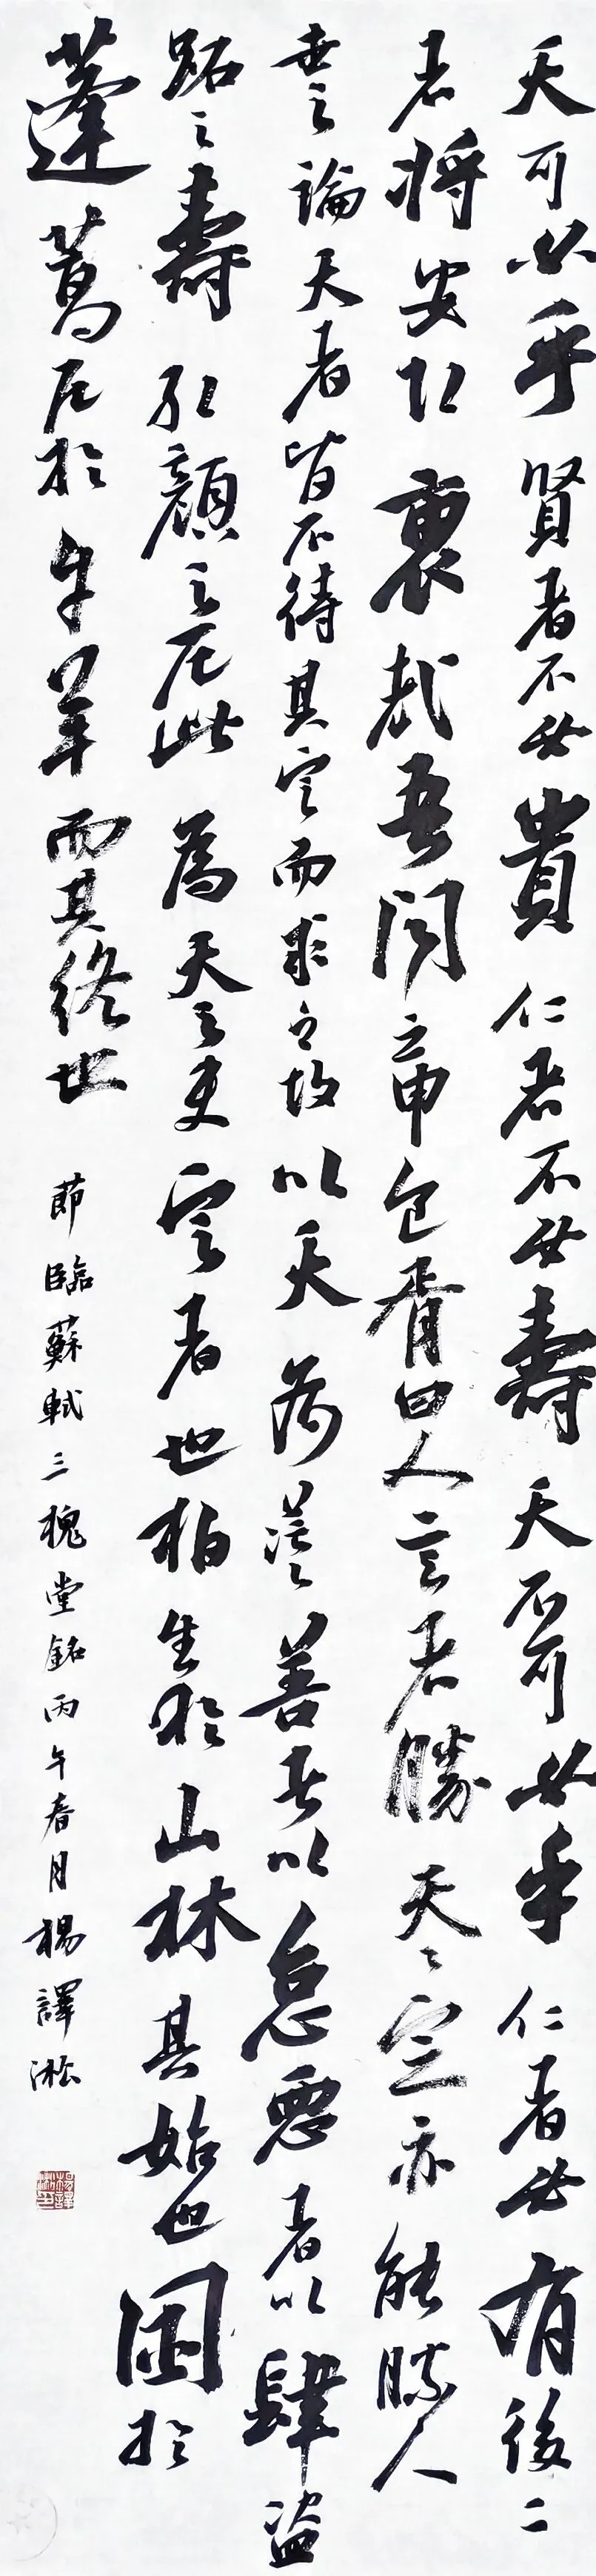 天可必乎賢者不必貴仁者不必壽天不可必乎仁者必有後二
者將安取衷哉吾聞之申包胥曰人定者勝天々定亦能勝人
世之論天者皆不待其定而求之故以天為茫々善者以怠惡者以肆盜
跖之壽孔顏之厄此為天之未定者也柏生於山林其始也困於
蓬蒿厄於牛羊而其終也 節臨蘇軾三槐堂銘丙午春月楊譯淞